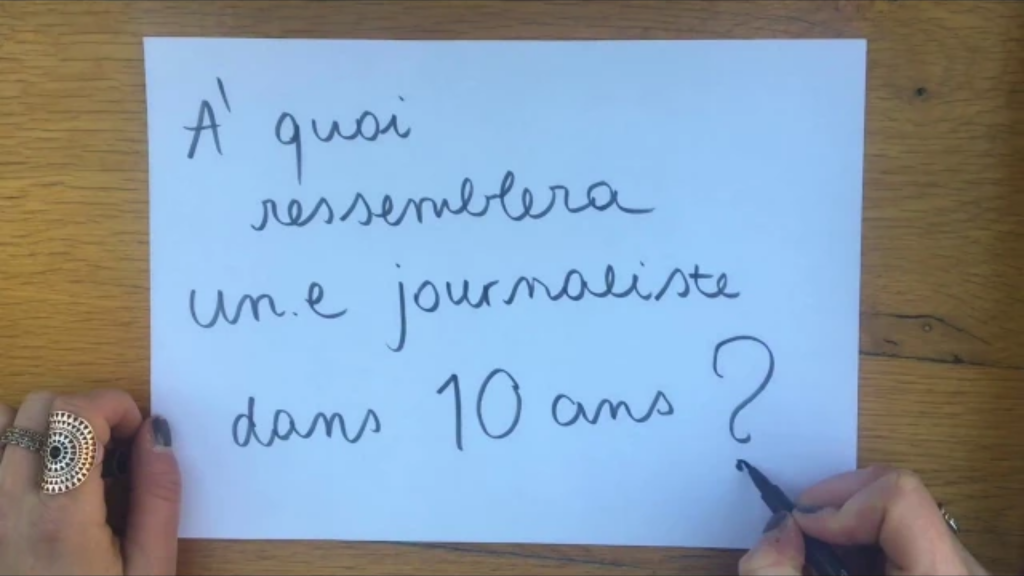 À quoi
ressemblera
un.e journaliste
dans 10 ans ?